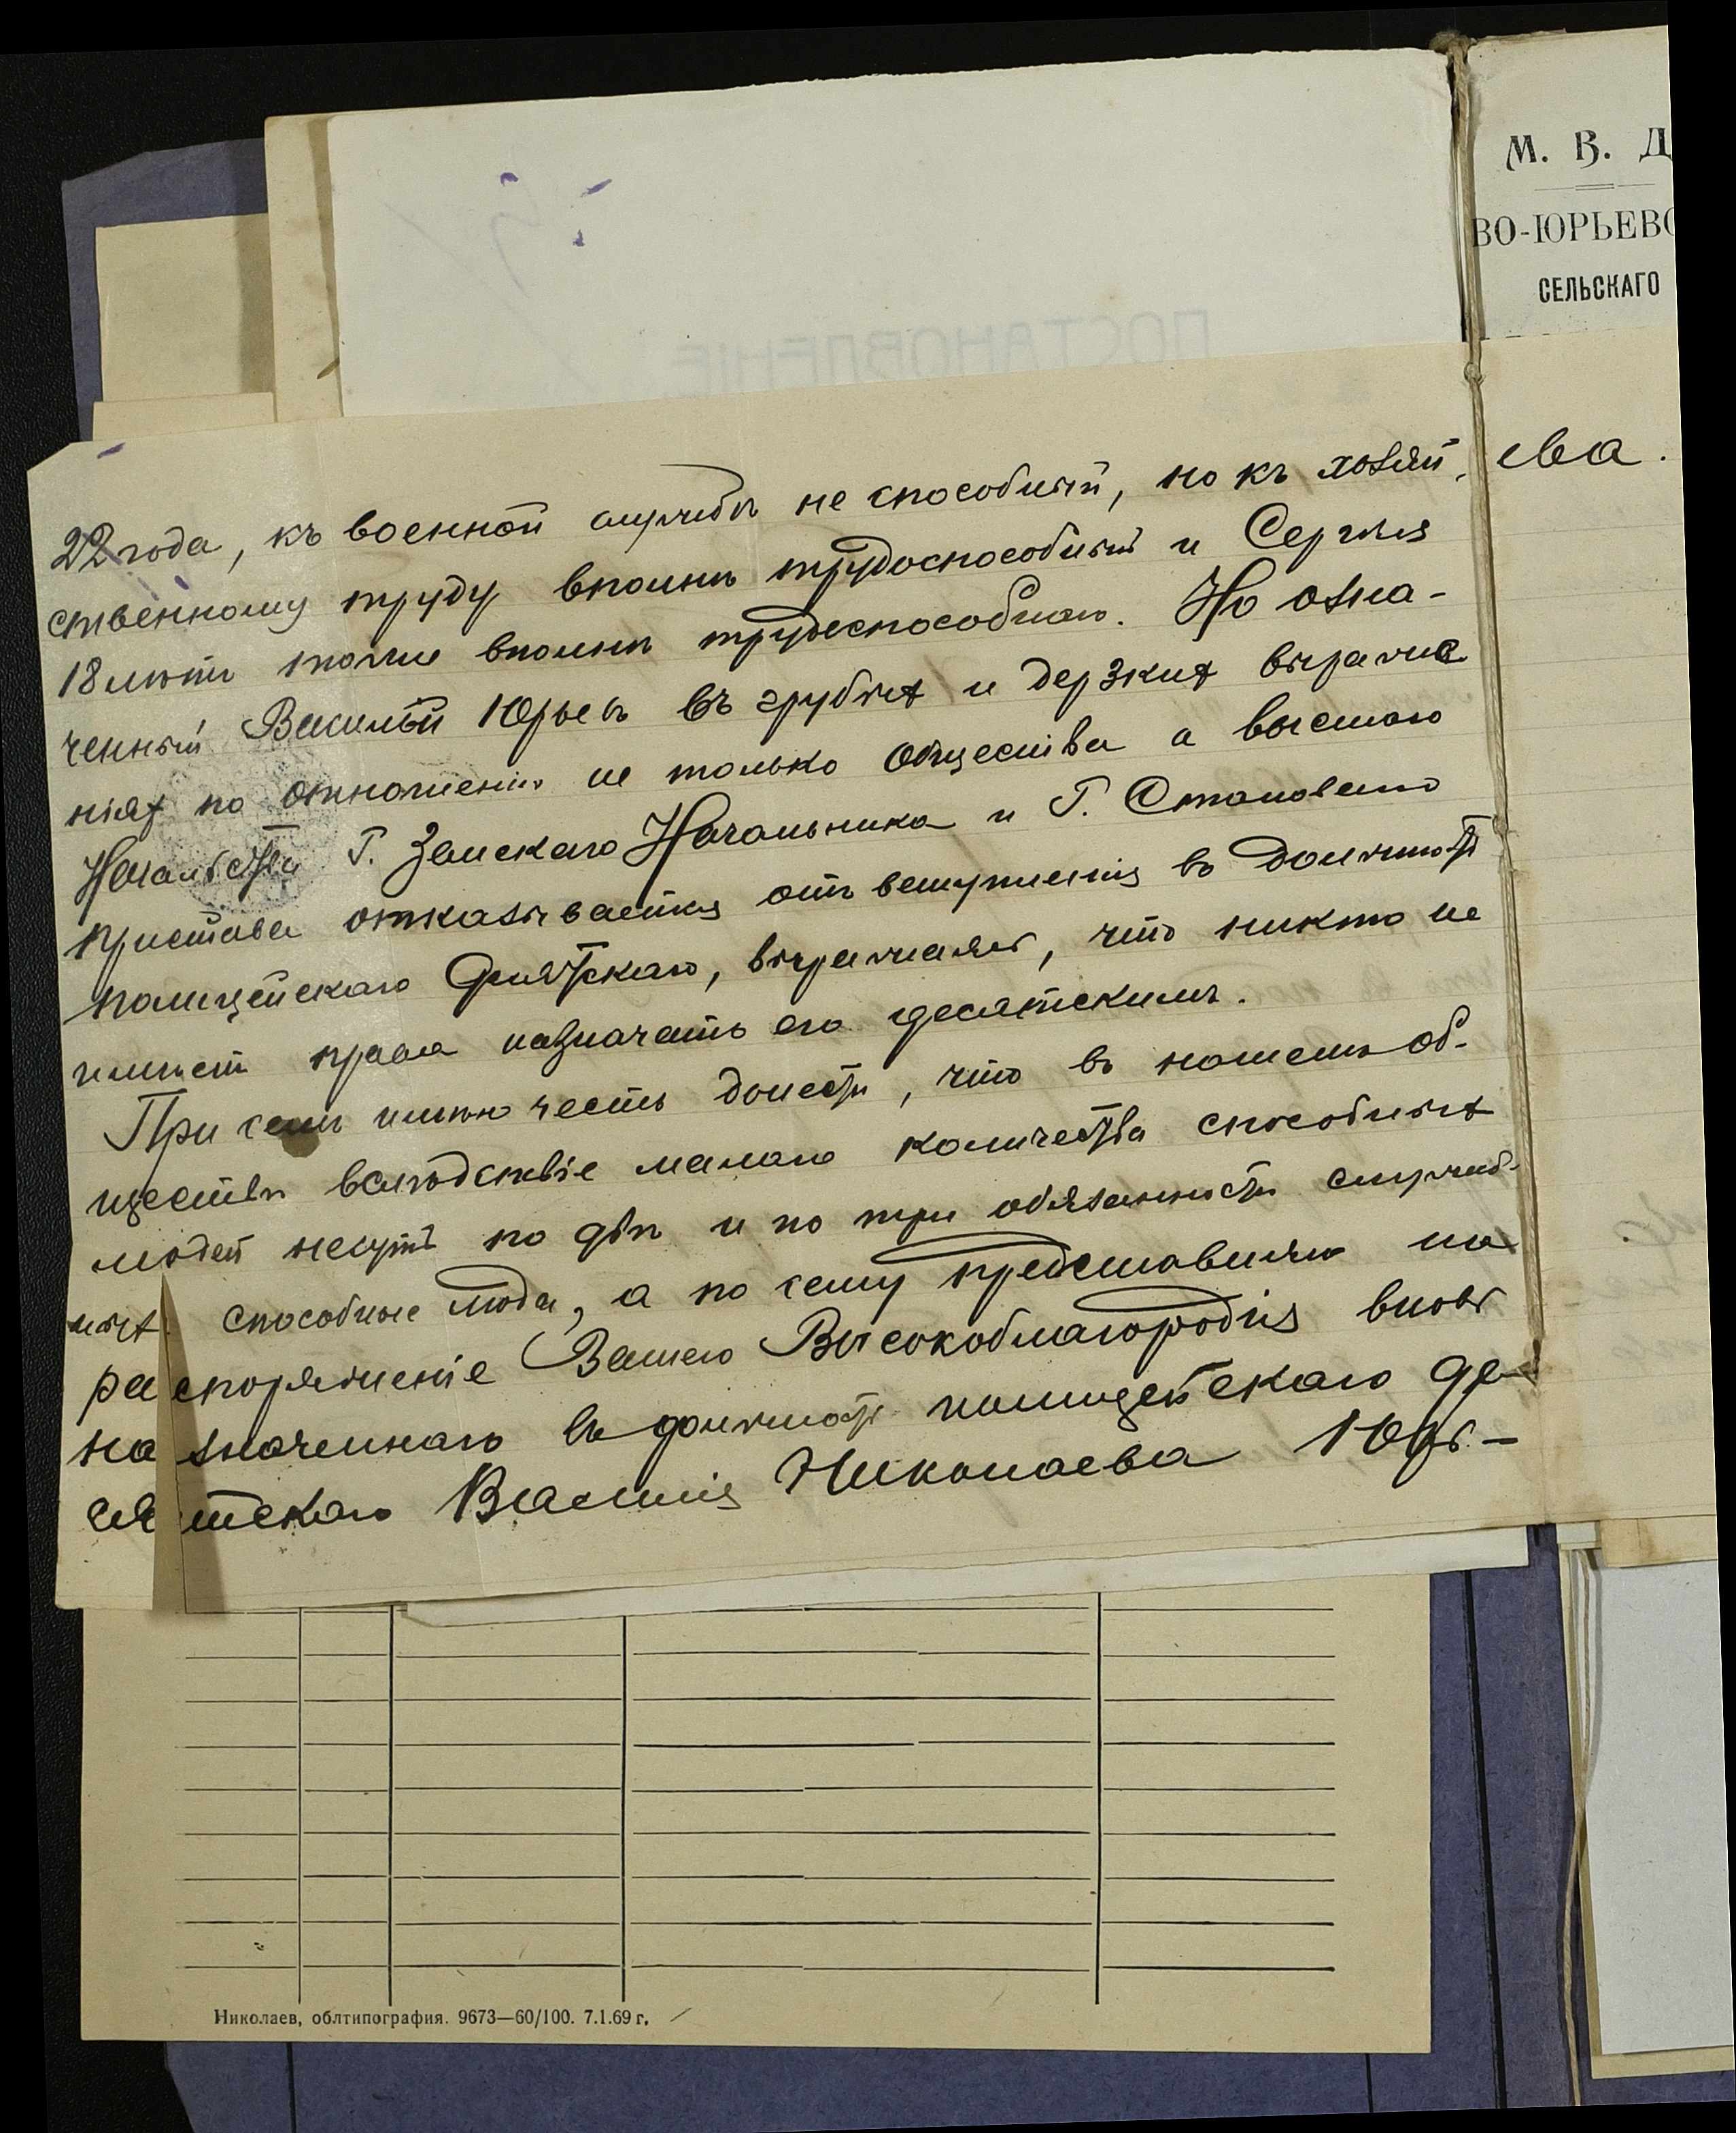 М. В. Д
ВО-ЮРЬЕВО
СЕЛЬСКАГО
ПОСТАНОВЛЕНІЕ
22 года, къ военной службѣ не способный, но къ хозяй
ственному труду вполнѣ трудоспособный и Сергѣя
18 лѣтъ тоже вполнѣ трудоспособнаго. Но озна-
ченный Василій Юрьевъ въ грубых и дерзких выраже
ніях по отношенію не только Общества а высшаго
Начальства Г. Земскаго Начальника и Г. Становаго
пристава отказывается отъ вступленія въ должность
полицейскаго Десятскаго, выражаясь, что никто не
имѣетъ права назначать его десятскимъ.
При семъ имѣю честь донести, что въ нашемъ об-
ществѣ вслѣдствіе малаго количества способных
людей несутъ по двѣ и по три обязанности служеб-
ных способные люди, а по сему представляю на
распоряженіе Вашего Высокоблагородія вновь
назначеннаго въ должность полицейскаго де-
сятскаго Василія Николаева Юрь-
ева.
Николаев, облтипография. 9673—60/100. 7.1.69 г.